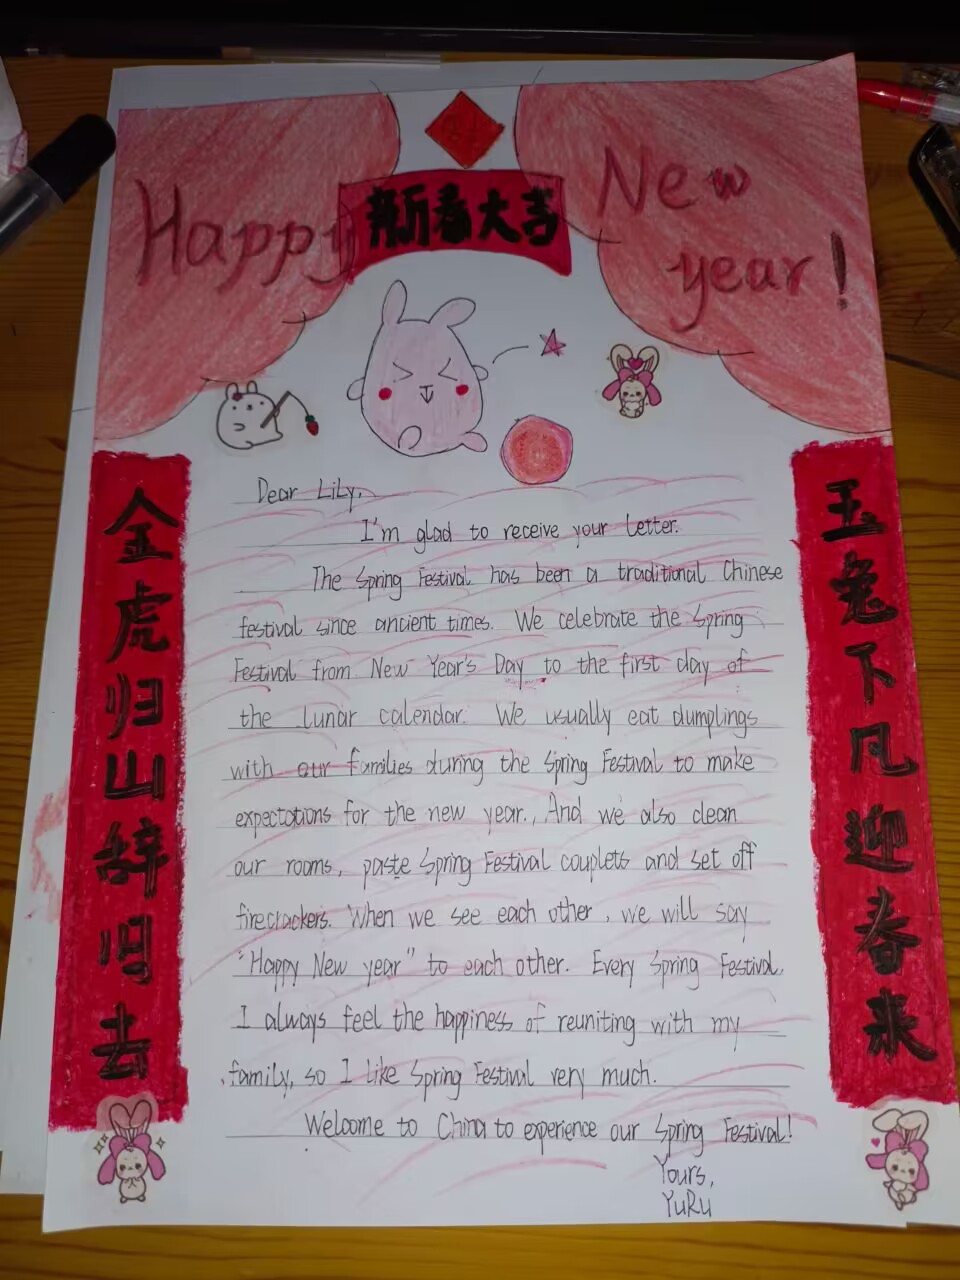 Happy
新春大吉
New
year!
金虎归山辞旧去
玉兔下凡迎春来
Dear Lily,
I'm glad to receive your letter.
The Spring Festival has been a traditional Chinese
festival since ancient times. We celebrate the Spring
Festival from New Year's Day to the first day of
the lunar calendar. We usually eat dumplings
with our families during the Spring Festival to make
expectations for the new year., And we also clean
our rooms, paste Spring Festival couplets and set off
firecrackers. When we see each other, we will say
"Happy New year" to each other. Every Spring Festival,
I always feel the happiness of reuniting with my
family, so I like Spring Festival very much.
Welcome to China to experience our Spring Festival!
Yours,
YuRu